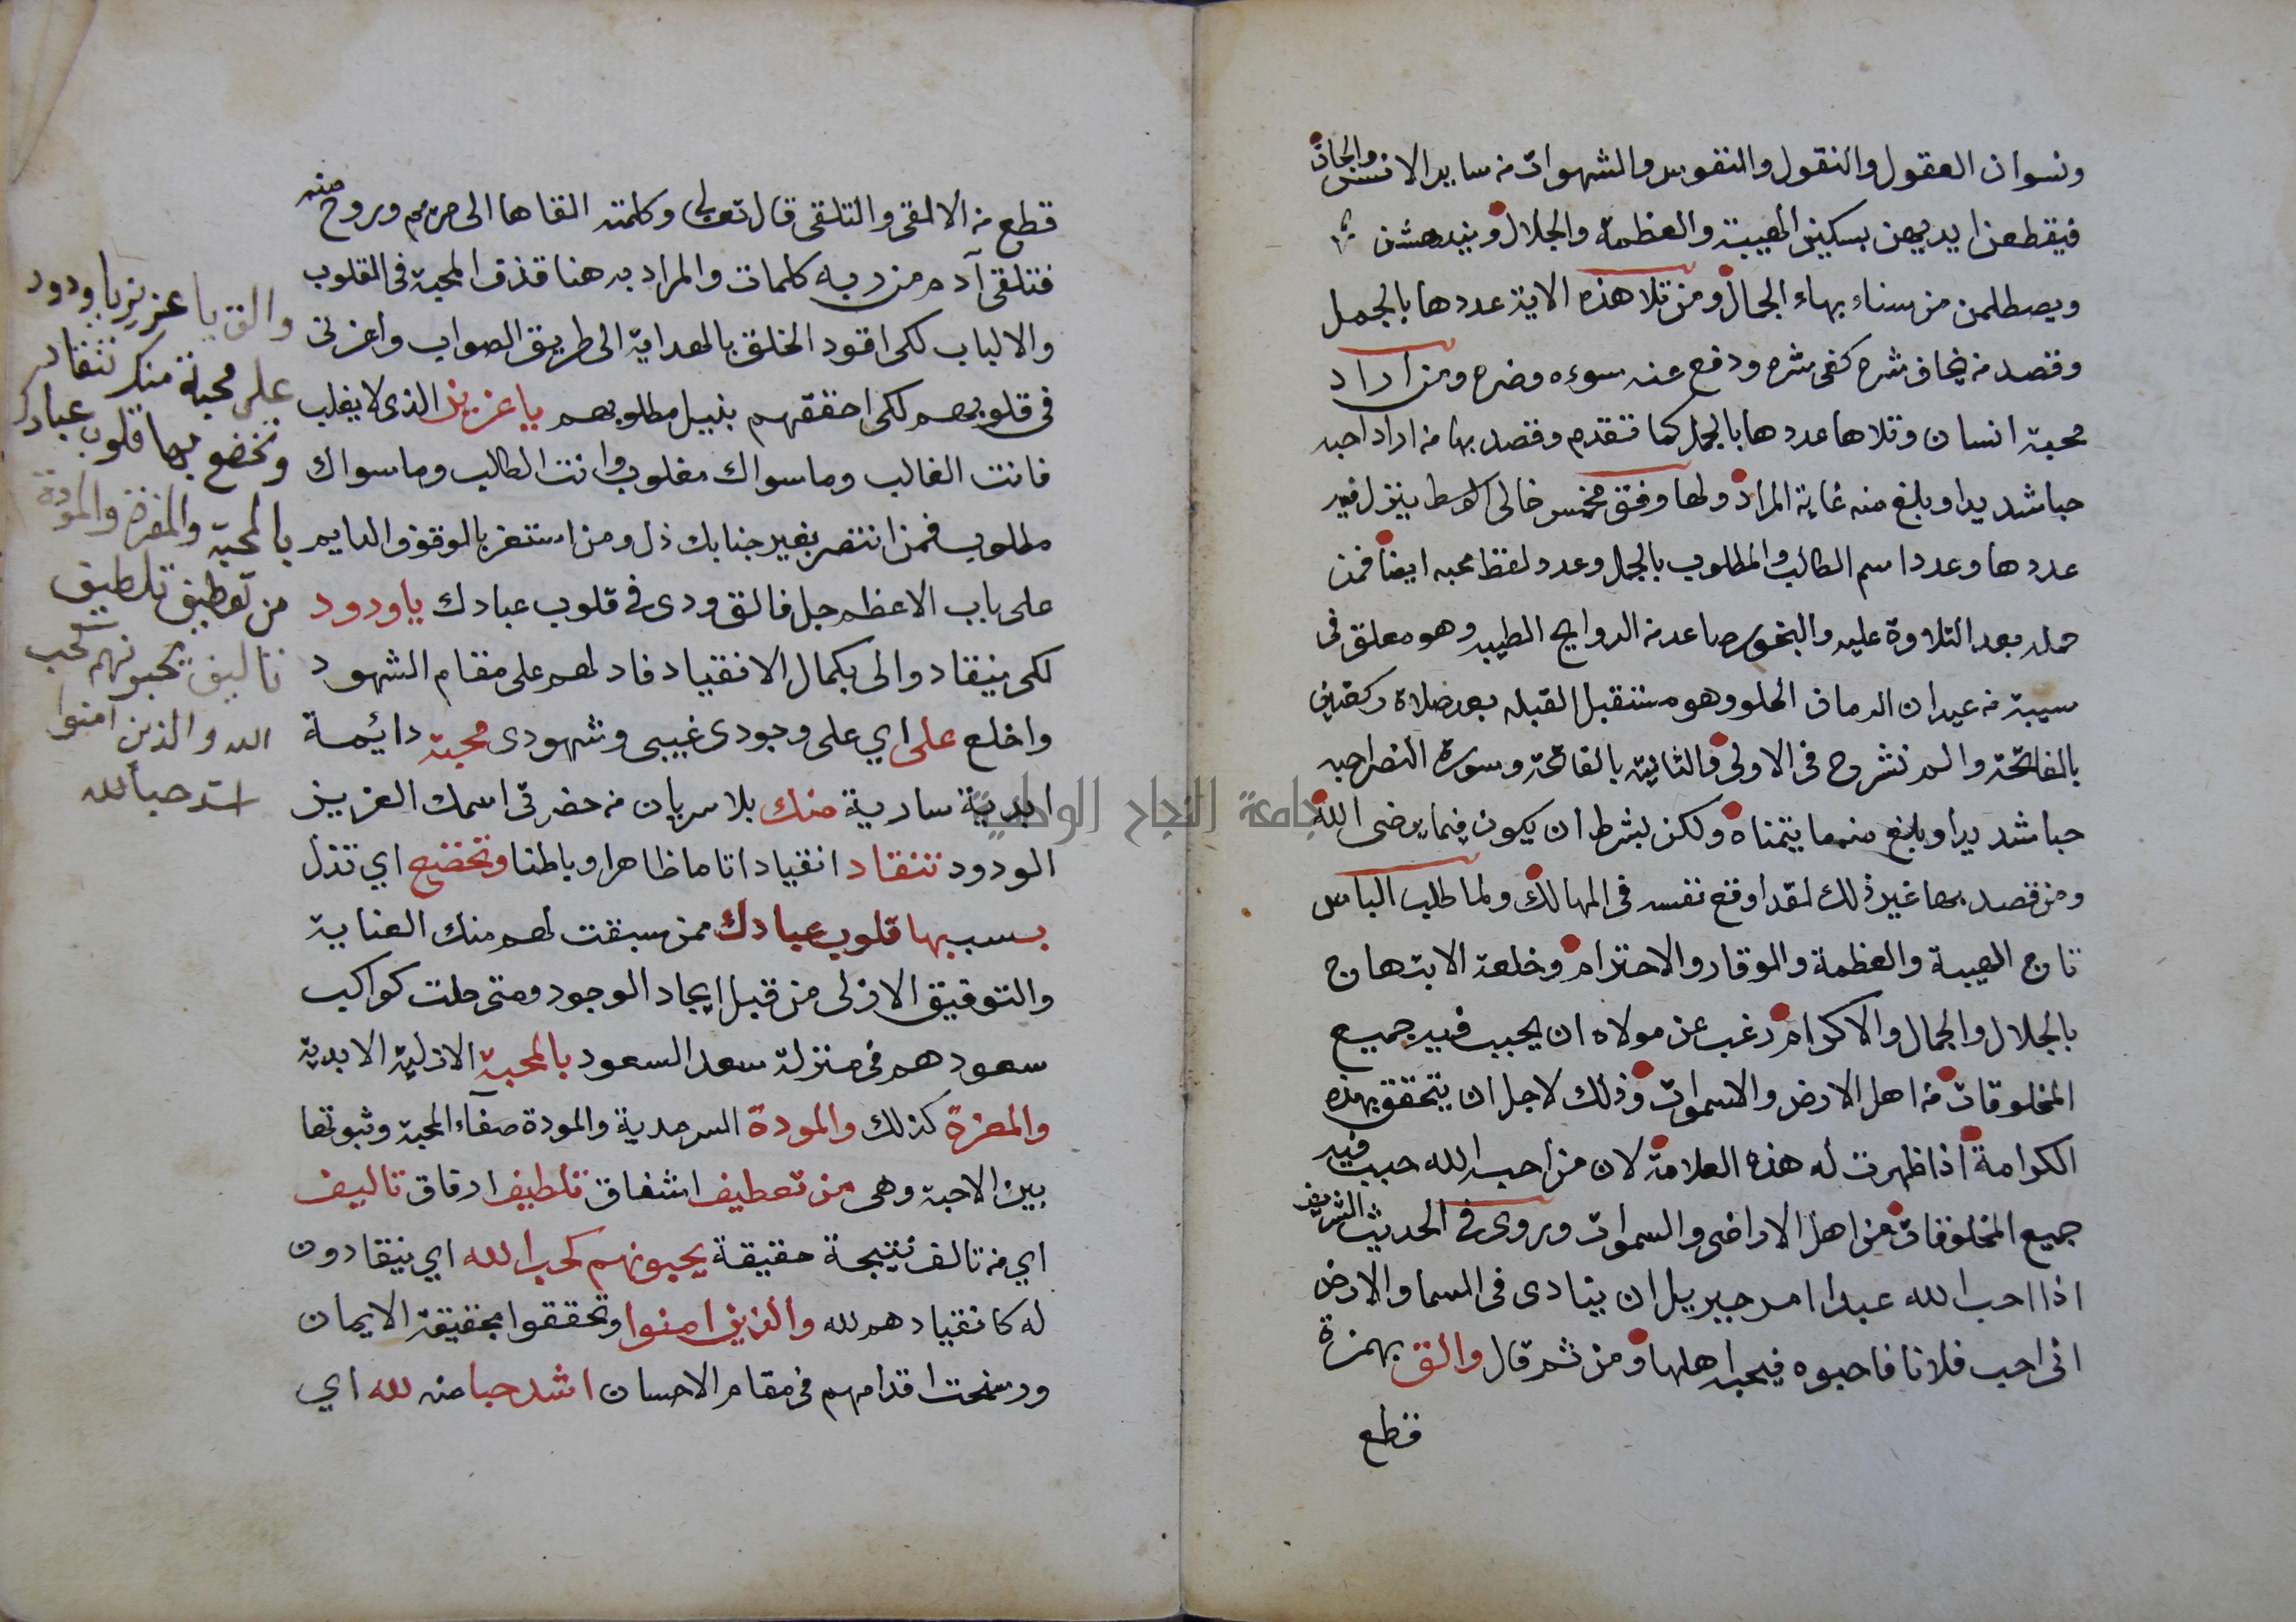 ونسوان العقول والنقول والنفوس والشهوات من ساير الانس والجان
فيقطعن ايديهن بسكين الهيبة والعظمة والجلال ويندهشن
ويصطلمن من سناء بهاء الجمال ومن تلا هذه الاية عددها بالجمل
وقصد من يخاف شره كفى شره ودفع عنه سوءه وضره ومن اراد
محبة انسان وتلاها عددها بالجمل كما تقدم وقصد بها من اراد احبه
حبا شديدا وبلغ منه غاية المراد ولها وفق مخمس خالى الوسط ينزل فيه
عددها وعدد اسم الطالب والمطلوب بالجمل وعدد لفظ محبه ايضا فمن
حمله بعد التلاوة عليه والبخور صاعد من الروايح الطيبه وهو معلق فى
سيبة من عيدان الرمان الحلو وهو مستقبل القبله بعد صلاة ركعتين
بالفاتحة والم نشرح فى الاولى والثانية بالفاتحة وسورة النصر احبه
حبا شديدا وبلغ منه ما يتمناه ولكن بشرط ان يكون فيما يرضى الله
ومن قصد بها غير ذلك لقد اوقع نفسه فى المهالك ولما طلب الباس
تاج الهيبة والعظمة والوقار والاحترام وخلعة الابتهاج
بالجلال والجمال والاكرام رغب عن مولاه ان يحبب فيه جميع
المخلوقات من اهل الارض والاسموات وذلك لاجل ان يتحقق بهذه
الكرامة اذا ظهرت له هذه العلامة لان من احب الله حبب فيه
جميع المخلوقات من اهل الاراضى والسموات وروى فى الحديث الشريف
اذا احب الله عبدا امر جبريل ان ينادى فى السما والارض
انى احب فلانا فاحبوه فيحبه اهلها ومن ثم قال والق بهمزة
قطع
قطع من الالقى والتلقى قال تعالى وكلمته القاها الى مريم وروح منه
فتلقى آدم من ربه كلمات والمراد به هنا قذف المحبة فى القلوب
والالباب لكى اقود الخلق بالهداية الى طريق الصواب واعزنى
فى قلوبهم لكى احققهم بنيل مطلوبهم يا عزيز الذى لا يغلب
فانت الغالب وما سواك مغلوب وانت الطالب وما سواك
مطلوب فمن انتصر بغير جنابك ذل ومن استعز بالوقوف الدايم
على باب الاعظم جل فالق ودى فى قلوب عبادك يا ودود
لكى ينقاد والى بكمال الانقياد فاد لهم على مقام الشهود
واخلع على اي على وجودى غيبى وشهودى محبة دائيمة
ابدية سارية منك بلا سريان من حضرتى اسمك العزيز
الودود تنقاد انقيادا تاما ظاهرا وباطنا وتخضع اي تذل
بسببها قلوب عبادك ممن سبقت لهم منك العناية
والتوفيق الازلى من قبل ايجاد الوجود ومتى حلت كواكب
سعودهم فى منزلة سعد السعود بالمحبة الازلية الابدية
والمعزة كذلك والمودة السرمدية والمودة صفآء المحبة وثبوتها
بين الاحبة وهى من تعطيف اشفاق تلطيف ارقاق تاليف
اي من تالف نتيجة حقيقة يحبونهم كحب الله اي ينقادون
له كانقيادهم لله والذين امنوا وتحققوا بحقيقة الايمان
ورسخت اقدامهم فى مقام الاحسان اشد حبا منه لله اي
والق يا عزيز يا ودود
على محبة منك تنقاد
وتخضع بها قلوب عبادك
بالمحبة والمعزة والمودة
من تعطيف تلطيف
تاليف يحبونهم كحب
الله والذين امنوا
اشد حبا لله
جامعة النجاح الوطنية